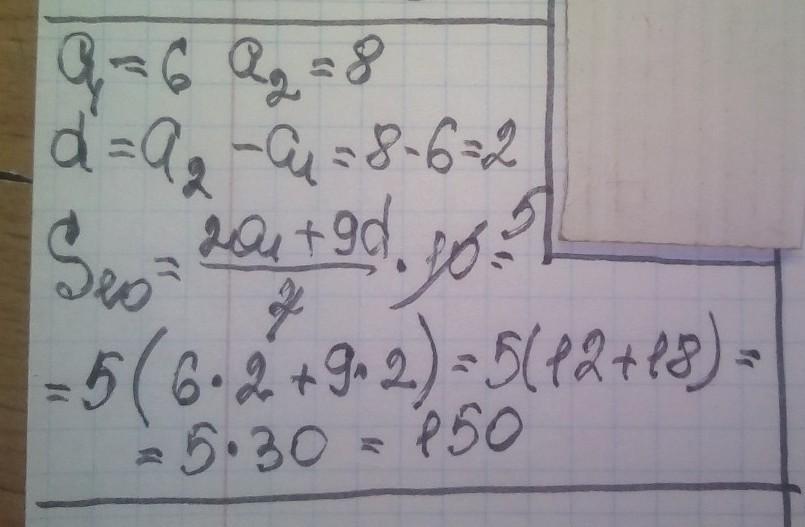 a₁ = 6 a₂ = 8
d = a₂ - a₁ = 8 - 6 = 2
S₁₀ = (2a₁ + 9d)/2 · 10 5 =
= 5(6·2 + 9·2) = 5(12 + 18) =
= 5·30 = 150